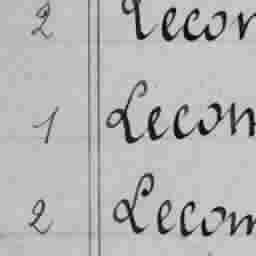 2 Lecon
1 Lecom
2 Lecom